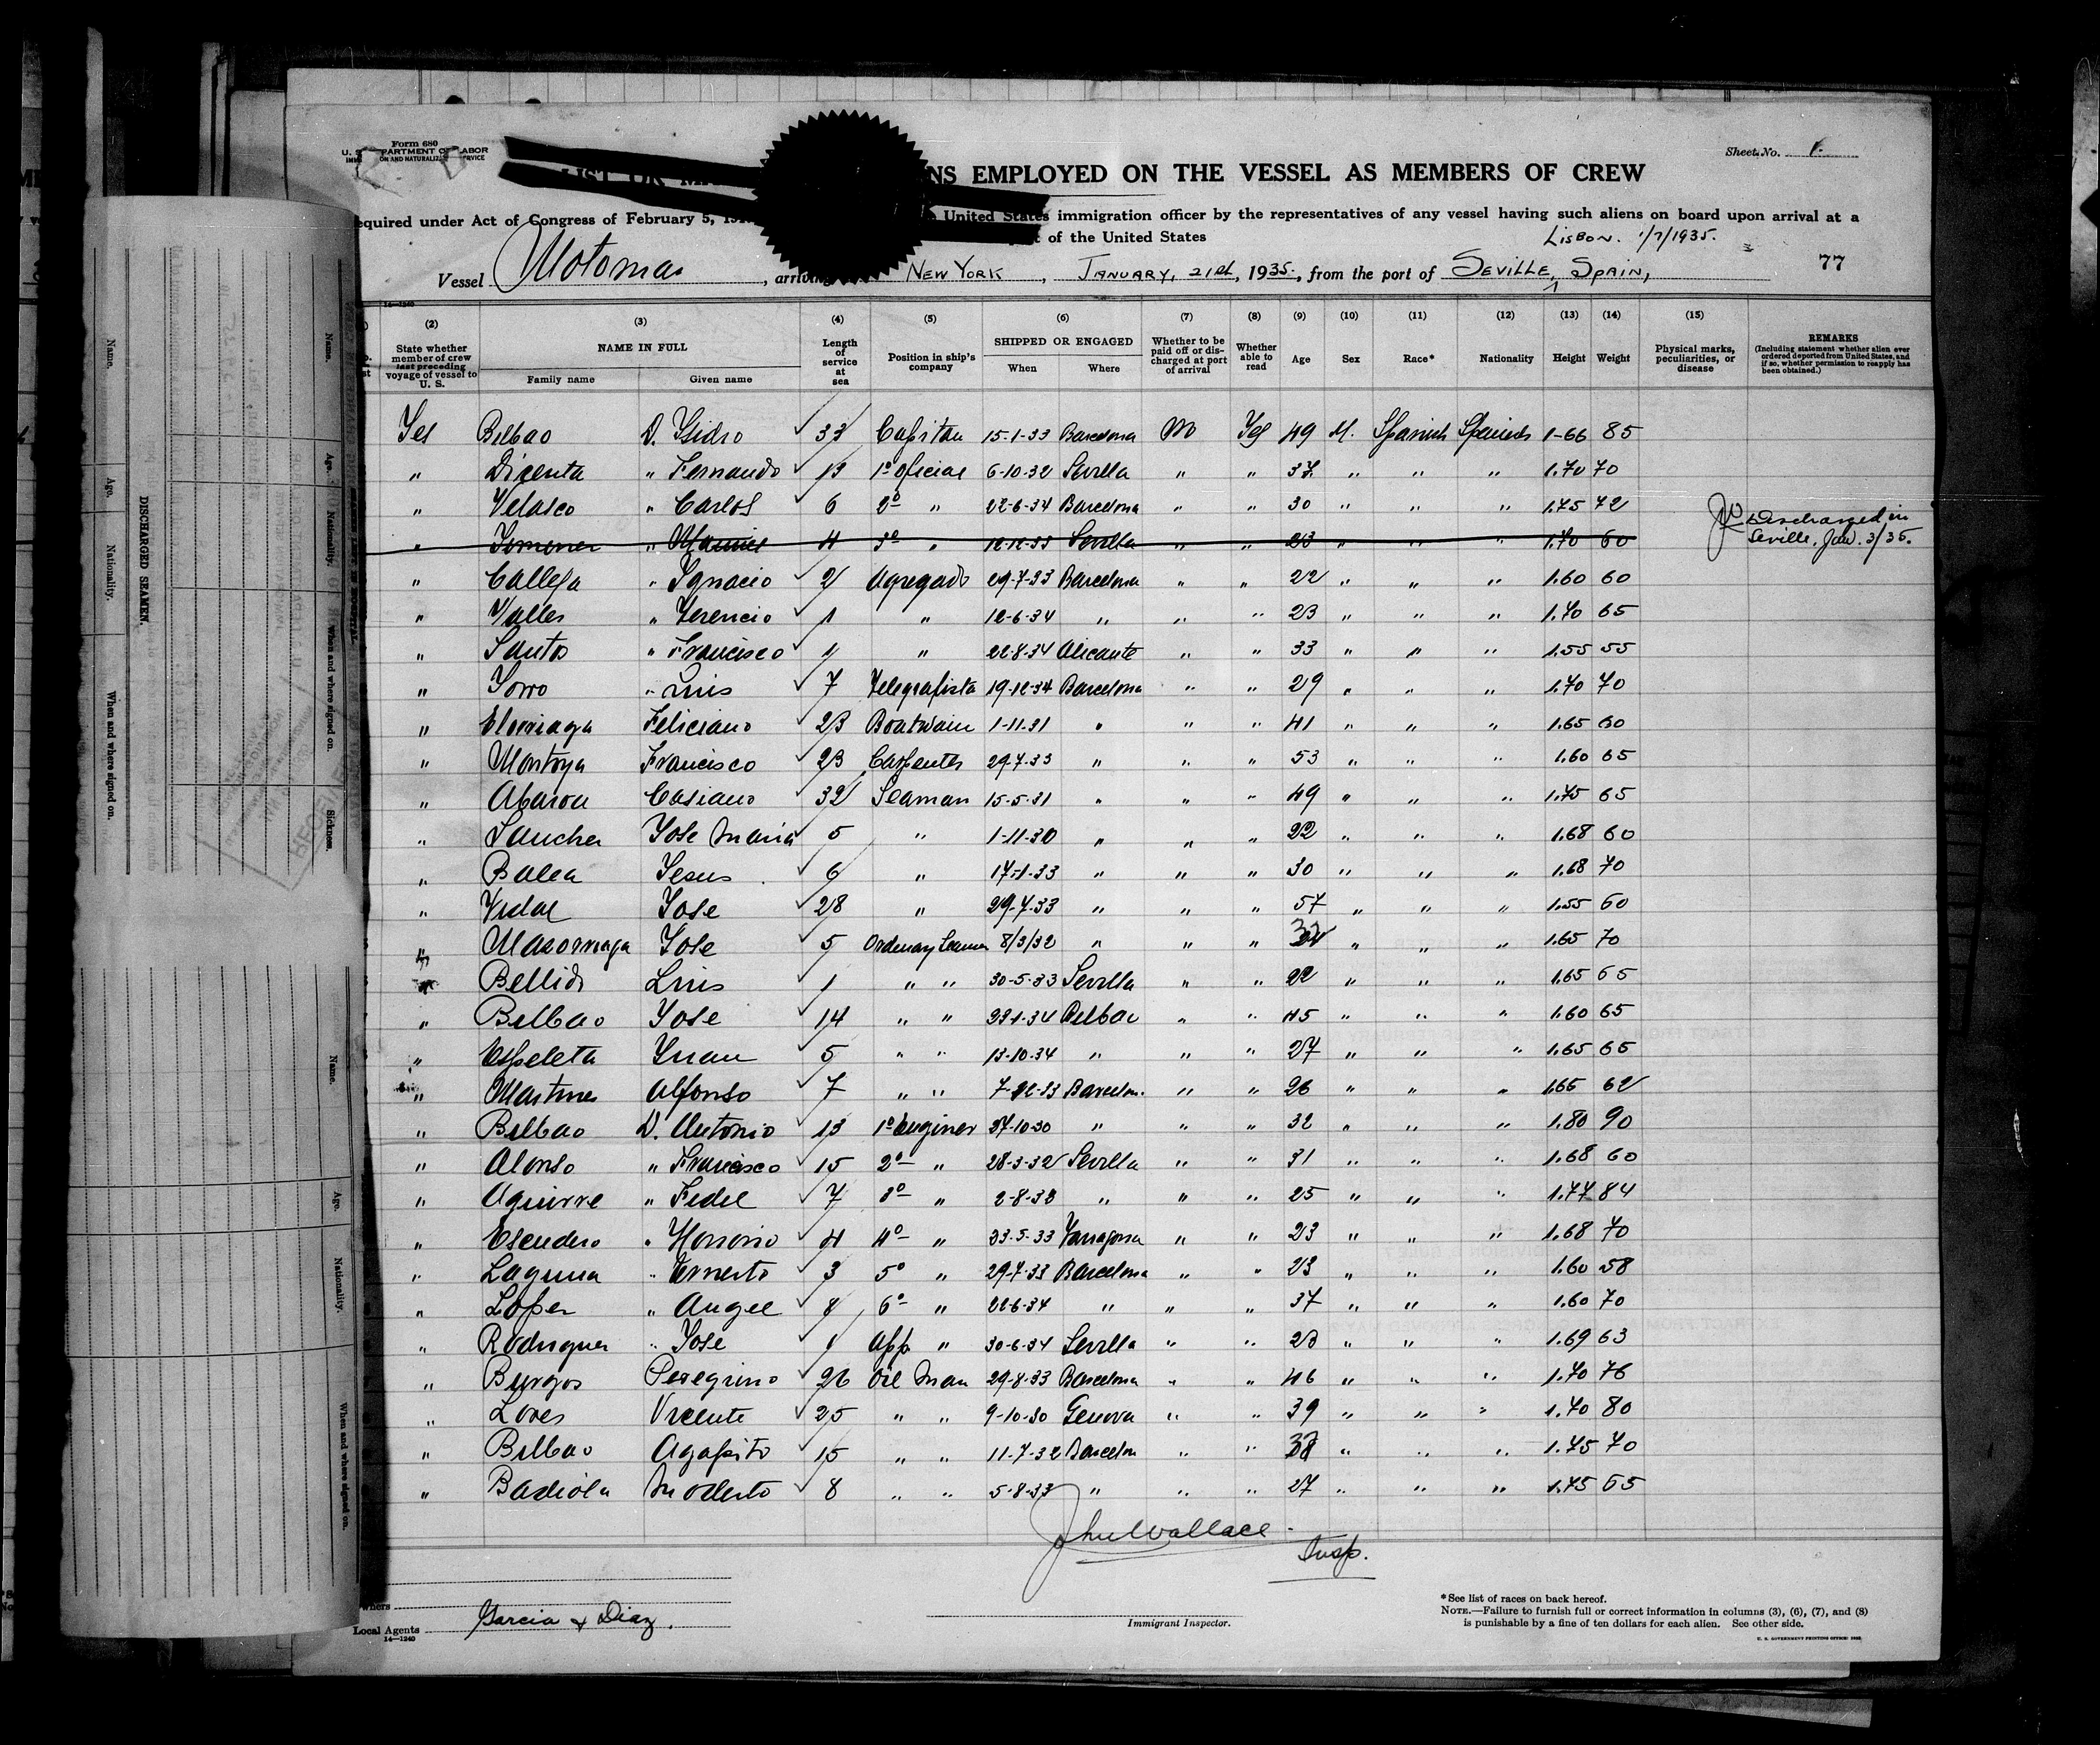 Form 680
U. S. DEPARTMENT OF LABOR
Sheet No. 1.
NS EMPLOYED ON THE VESSEL AS MEMBERS OF CREW
equired under Act of Congress of February 5, United States immigration officer by the representatives of any vessel having such aliens on board upon arrival at a
of the United States
Lisbon. 1/7/1935.
Vessel Motomar, arriving NEW YORK, JANUARY, 21st, 1935., from the port of SEVILLE, SPAIN, 77
(2) (3) (4) (5) (6) (7) (8) (9) (10) (11) (12) (13) (14) (15)
State whether member of crew last preceding voyage of vessel to U. S. NAME IN FULL Family name Given name Length of service at sea Position in ship's company SHIPPED OR ENGAGED When Where Whether to be paid off or discharged at port of arrival Whether able to read Age Sex Race* Nationality Height Weight Physical marks, peculiarities, or disease REMARKS (Including statement whether alien ever ordered deported from United States, and if so, whether permission to reapply has been obtained.)
Yes Bilbao D. Ysidro 33 Capitan 15-1-33 Barcelona No Yes 49 M. Spanish Spanish 1-66 85
" Dicenta " Fernando 13 1º oficial 6-10-32 Sevilla " " 37 " " " 1.70 70
" Velasco " Carlos 6 2º " 22-6-34 Barcelona " " 30 " " " 1.75 72
" Ximenez " Manuel 4 3º " 12-12-33 Sevilla " " 23 " " " 1.70 60 Discharged in Seville, Jan. 3/35.
" Calleja " Ygnacio 2 Agregado 29-7-33 Barcelona " " 22 " " " 1.60 60
" Valles " Terencio 1 " 12-6-34 " " " 23 " " " 1.70 65
" Santos " Francisco 1 " 22-8-34 Alicante " " 33 " " " 1.55 55
" Yorro " Luis 7 Telegrafista 19-12-34 Barcelona " " 29 " " " 1.70 70
" Elorriaga Feliciano 23 Boatswain 1-11-31 " " " 41 " " " 1.65 60
" Montoya Francisco 23 Carpenter 29-7-33 " " " 53 " " " 1.60 65
" Abaroa Casiano 32 Seaman 15-5-31 " " " 49 " " " 1.75 65
" Sanchez Jose Maria 5 " 1-11-30 " " " 22 " " " 1.68 60
" Balea Jesus 6 " 17-1-33 " " " 30 " " " 1.68 70
" Vidal Jose 28 " 29-7-33 " " " 57 " " " 1.55 60
" Masorriaga Jose 5 Ordenary Seaman 8/3/32 " " " " " " 1.65 70
" Bellido Luis 1 " " 30-5-33 Sevilla " " 22 " " " 1.65 65
" Bilbao Jose 14 " " 23-1-34 Bilbao " " 45 " " " 1.60 65
" Espeleta Juan 5 " " 13-10-34 " " " 27 " " " 1.65 65
" Martinez Alfonso 7 " " 7-12-33 Barcelon. " " 26 " " " 1.65 62
" Bilbao D. Antonio 13 1º Enginer 27-10-30 " " " 32 " " " 1.80 90
" Alonso " Francisco 15 2º " 28-3-32 Sevilla " " 31 " " " 1.68 60
" Aguirre " Fidel 7 3º " 2-8-33 " " " 25 " " " 1.77 84
" Escudero " Honorio 4 4º " 23-5-33 Tarragona " " 23 " " " 1.68 70
" Laguna " Ernesto 3 5º " 29-7-33 Barcelona " " 23 " " " 1.60 58
" Lopez " Angel 8 6º " 22-6-34 " " " 37 " " " 1.60 70
" Rodriguez " Jose 1 App " 30-6-34 Sevilla " " 23 " " " 1.69 63
" Burgos Peregrino 26 Oil Man 29-8-33 Barcelona " " 46 " " " 1.70 76
" Lores Vicente 25 " " 9-10-30 Genova " " 39 " " " 1.70 80
" Bilbao Agapito 15 " " 11-7-32 Barcelon " " " " " 1.75 70
" Badiola Modesto 8 " " 5-8-33 " " " 27 " " " 1.75 65
John Wallace
Insp.
Immigrant Inspector.
Local Agents Garcia & Diaz.
14—1240
*See list of races on back hereof.
NOTE.—Failure to furnish full or correct information in columns (3), (6), (7), and (8)
is punishable by a fine of ten dollars for each alien. See other side.
DISCHARGED SEAMEN.
Name.
Age.
Nationality.
When and where signed on.
Name.
Age.
Nationality.
When and where signed on.
Sickness.
Name.
Age.
Nationality.
When and where signed on.